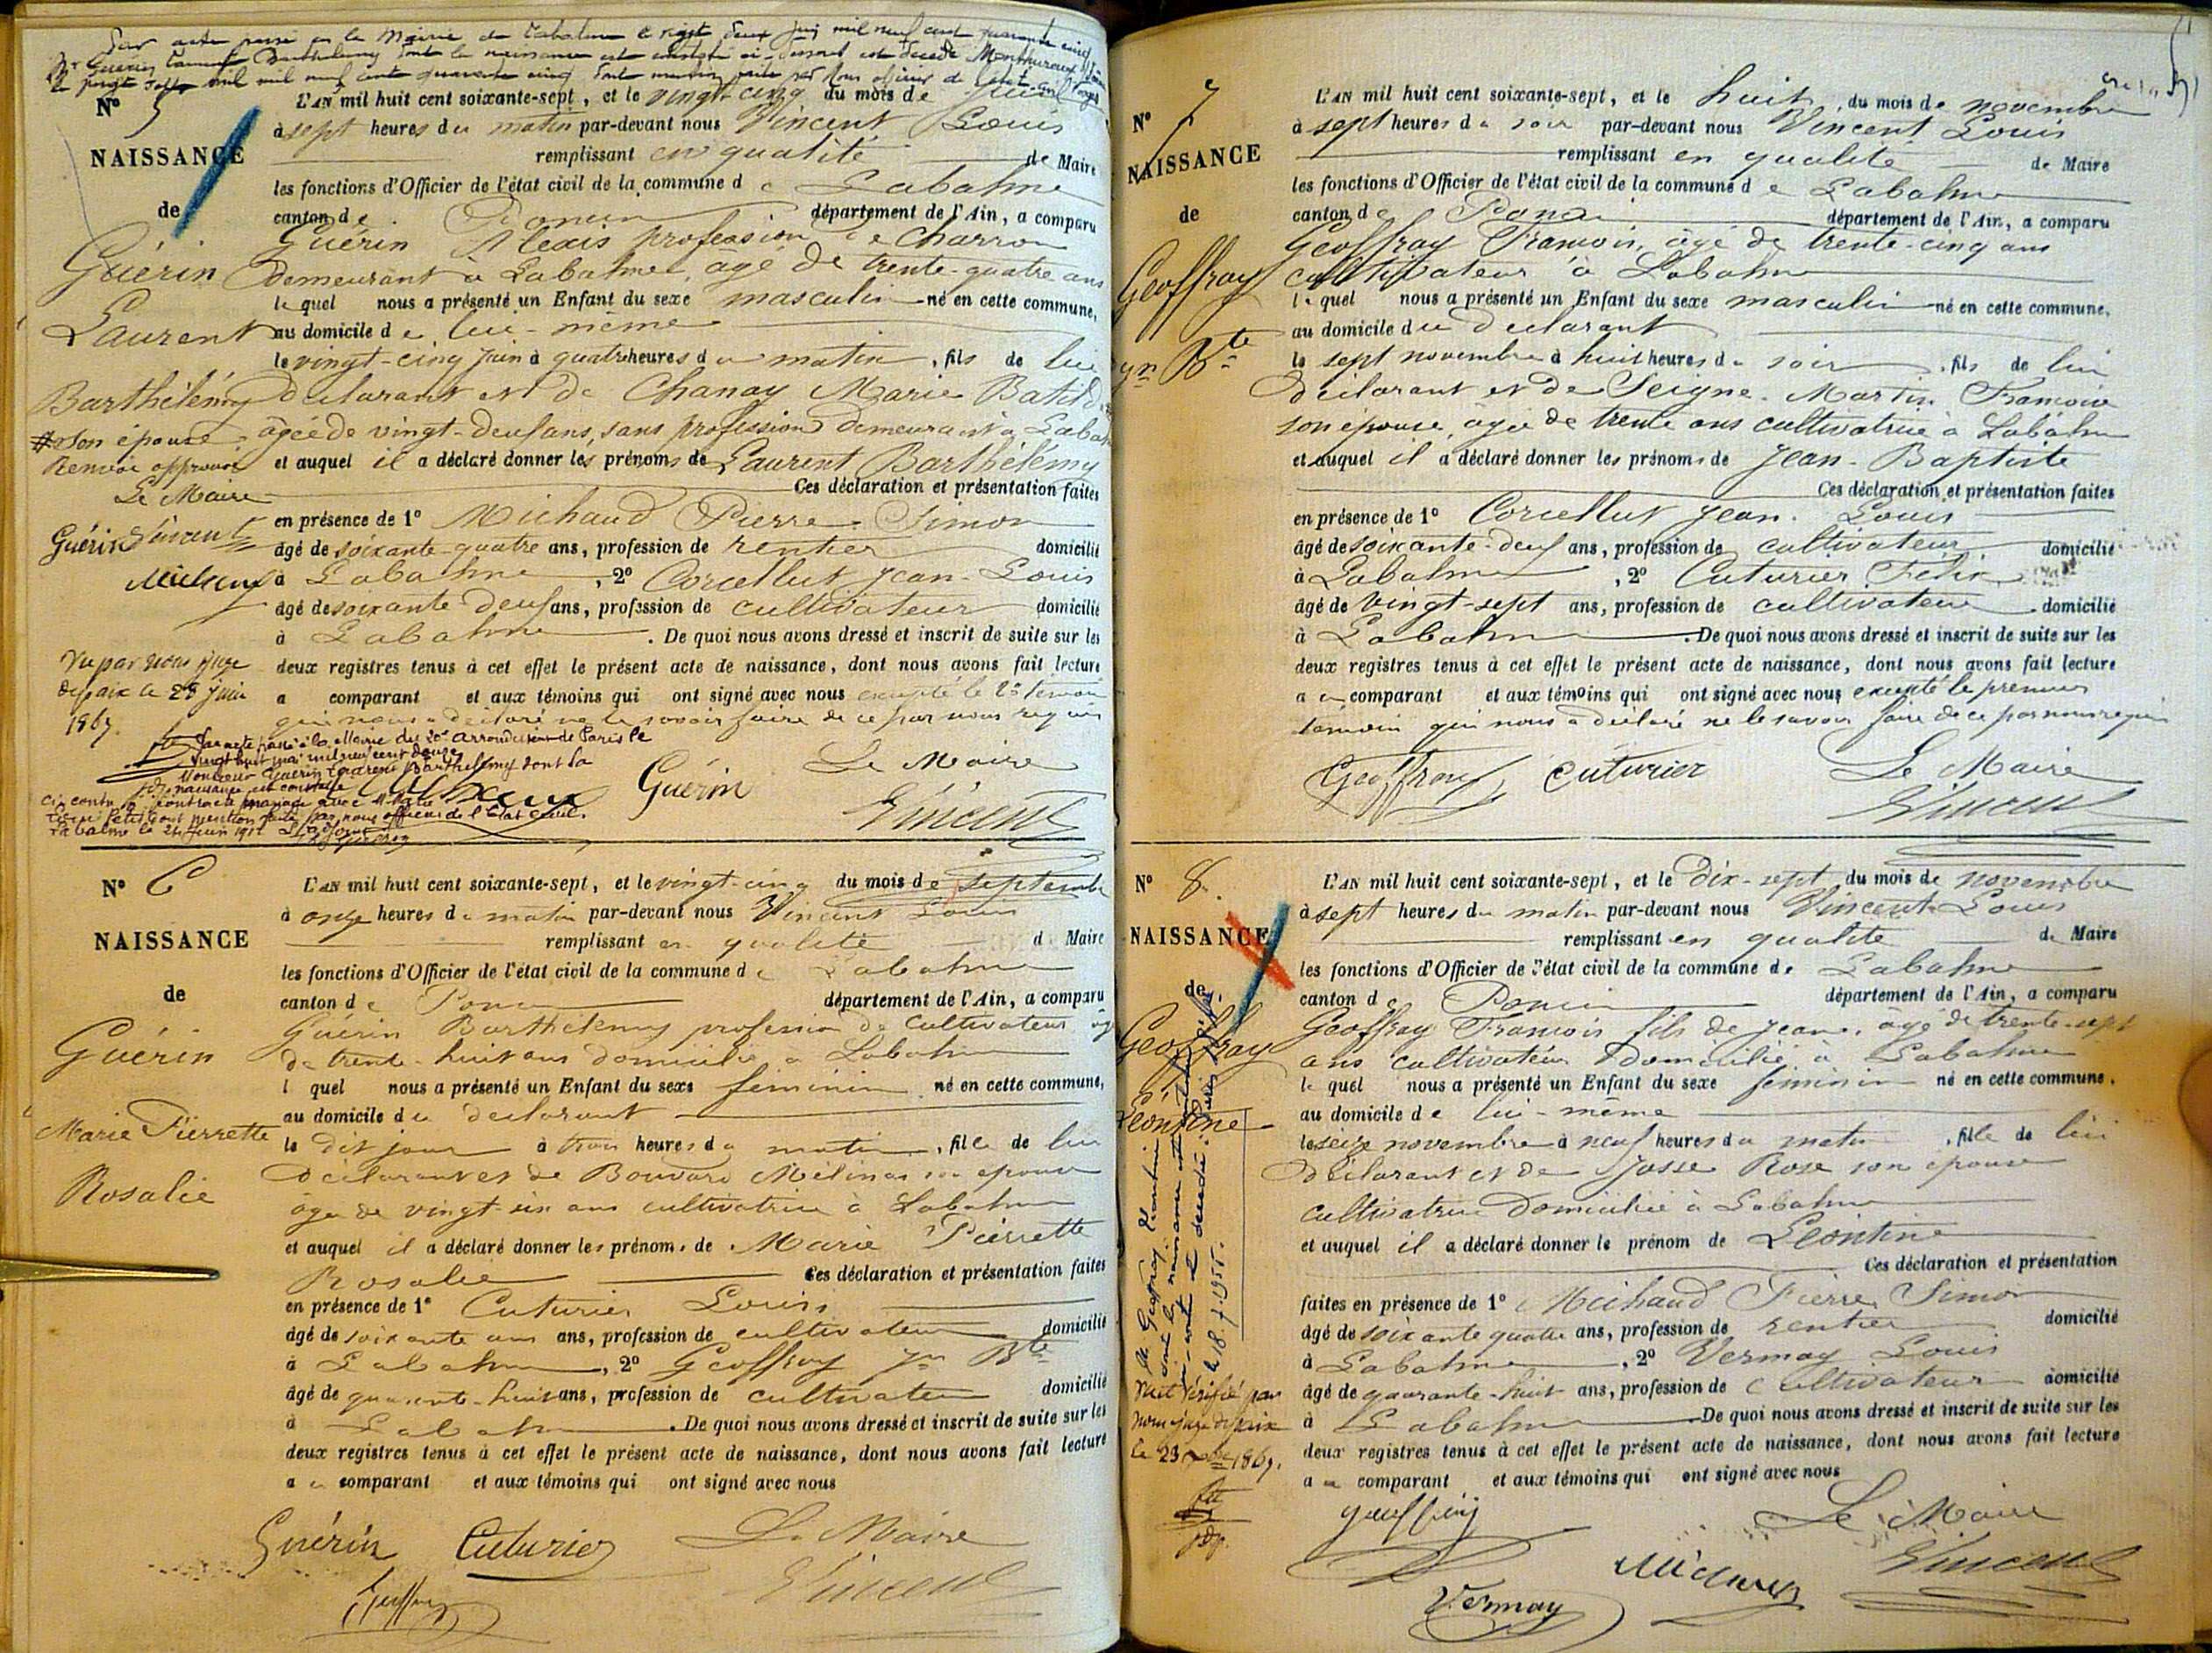 Par acte passé en la Mairie de Labalme le vingt deux juin mil neuf cent quarante cinq
Mr Guérin Laurent Barthélemy dont la naissance est constatée ci-dessous est décédé
mil neuf cent quarante cinq dont mention faite par Nous officier de l'état-civil
N° 5
NAISSANCE
de
Guérin
Laurent
Barthélémy
# son épouse
Renvoi approuvé
Le Maire
Guérin Vincent
Michaud
Vu par nous juge
de paix le 28 juin
1867.
L'AN mil huit cent soixante-sept, et le vingt-cinq du mois de juin
à sept heures du matin par-devant nous Vincent Louis
remplissant en qualité de Maire
les fonctions d'Officier de l'état civil de la commune de Labalme
canton de Poncin département de l'Ain, a comparu
Guérin Alexis profession de Charron
demeurant à Labalme, âgé de trente-quatre ans
lequel nous a présenté un Enfant du sexe masculin né en cette commune,
au domicile de lui-même
le vingt-cinq juin à quatre heures du matin, fils de lui
déclarant et de Chanay Marie Batilde #
âgée de vingt-deux ans, sans profession demeurant à Labalme
et auquel il a déclaré donner les prénoms de Laurent Barthélémy
Ces déclaration et présentation faites
en présence de 1° Michaud Pierre Simon
âgé de soixante-quatre ans, profession de rentier domicilié
à Labalme, 2° Corcellut Jean-Louis
âgé de soixante deux ans, profession de cultivateur domicilié
à Labalme. De quoi nous avons dressé et inscrit de suite sur les
deux registres tenus à cet effet le présent acte de naissance, dont nous avons fait lecture
a comparant et aux témoins qui ont signé avec nous excepté le 2e témoin
qui nous a déclaré ne le savoir faire de ce par nous requis
Par acte passé à la Mairie du 20e arrondissement de Paris le
vingt huit mai mil neuf cent douze
Monsieur Guérin Laurent Barthélemy dont la
naissance est constatée
ci-contre a contracté mariage avec
Petit dont mention faite par nous officier de l'Etat Civil.
Labalme le 24 juin 1912
Le Maire
Guérin
Vincent
N° 6
NAISSANCE
de
Guérin
Marie Pierrette
Rosalie
L'AN mil huit cent soixante-sept, et le vingt-cinq du mois de septembre
à onze heures du matin par-devant nous Vincent Louis
remplissant en qualité de Maire
les fonctions d'Officier de l'état civil de la commune de Labalme
canton de Poncin département de l'Ain, a comparu
Guérin Barthélemy profession de Cultivateur âgé
de trente-huit ans domicilié à Labalme
lequel nous a présenté un Enfant du sexe féminin né en cette commune,
au domicile du déclarant
le dit jour à trois heures du matin, fille de lui
déclarant et de Bouvard Mélina son épouse
âgée de vingt-six ans cultivatrice à Labalme
et auquel il a déclaré donner les prénoms de Marie Pierrette
Rosalie Ces déclaration et présentation faites
en présence de 1° Cuturier Louis
âgé de soixante ans ans, profession de cultivateur domicilié
à Labalme, 2° Geoffray Jn Bte
âgé de quarante-huit ans, profession de cultivateur domicilié
à Labalme. De quoi nous avons dressé et inscrit de suite sur les
deux registres tenus à cet effet le présent acte de naissance, dont nous avons fait lecture
au comparant et aux témoins qui ont signé avec nous
Guérin Cuturier Le Maire
Geoffray Vincent
N° 7
NAISSANCE
de
Geoffray
Jn Bte
L'AN mil huit cent soixante-sept, et le huit du mois de novembre
à sept heures du soir par-devant nous Vincent Louis
remplissant en qualité de Maire
les fonctions d'Officier de l'état civil de la commune de Labalme
canton de Poncin département de l'Ain, a comparu
Geoffray François, âgé de trente-cinq ans
cultivateur à Labalme
lequel nous a présenté un Enfant du sexe masculin né en cette commune,
au domicile du déclarant
le sept novembre à huit heures du soir, fils de lui
déclarant et de Seigne-Martin Françoise
son épouse, âgée de trente ans cultivatrice à Labalme
et auquel il a déclaré donner les prénoms de Jean-Baptiste
Ces déclaration et présentation faites
en présence de 1° Corcellut Jean-Louis
âgé de soixante-deux ans, profession de cultivateur domicilié
à Labalme, 2° Cuturier Félix
âgé de vingt-sept ans, profession de cultivateur domicilié
à Labalme. De quoi nous avons dressé et inscrit de suite sur les
deux registres tenus à cet effet le présent acte de naissance, dont nous avons fait lecture
au comparant et aux témoins qui ont signé avec nous excepté le premier
témoin qui nous a déclaré ne le savoir faire de ce par nous requis
Geoffray Cuturier Le Maire
Vincent
N° 8.
NAISSANCE
de
Geoffray
Léontine
Vu et vérifié par
nous juge de paix
le 23 1867.
L'AN mil huit cent soixante-sept, et le dix-sept du mois de novembre
à sept heures du matin par-devant nous Vincent Louis
remplissant en qualité de Maire
les fonctions d'Officier de l'état civil de la commune de Labalme
canton de Poncin département de l'Ain, a comparu
Geoffray François fils de Jean, âgé de trente-sept
ans cultivateur domicilié à Labalme
lequel nous a présenté un Enfant du sexe féminin né en cette commune,
au domicile de lui-même
le seize novembre à neuf heures du matin, fille de lui
déclarant et de Josse Rose son épouse
cultivatrice domiciliée à Labalme
et auquel il a déclaré donner le prénom de Léontine
Ces déclaration et présentation
faites en présence de 1° Michaud Pierre Simon
âgé de soixante quatre ans, profession de rentier domicilié
à Labalme, 2° Vermay Louis
âgé de quarante-huit ans, profession de cultivateur domicilié
à Labalme De quoi nous avons dressé et inscrit de suite sur les
deux registres tenus à cet effet le présent acte de naissance, dont nous avons fait lecture
au comparant et aux témoins qui ont signé avec nous
Geoffray Le Maire
Vermay Michaud Vincent